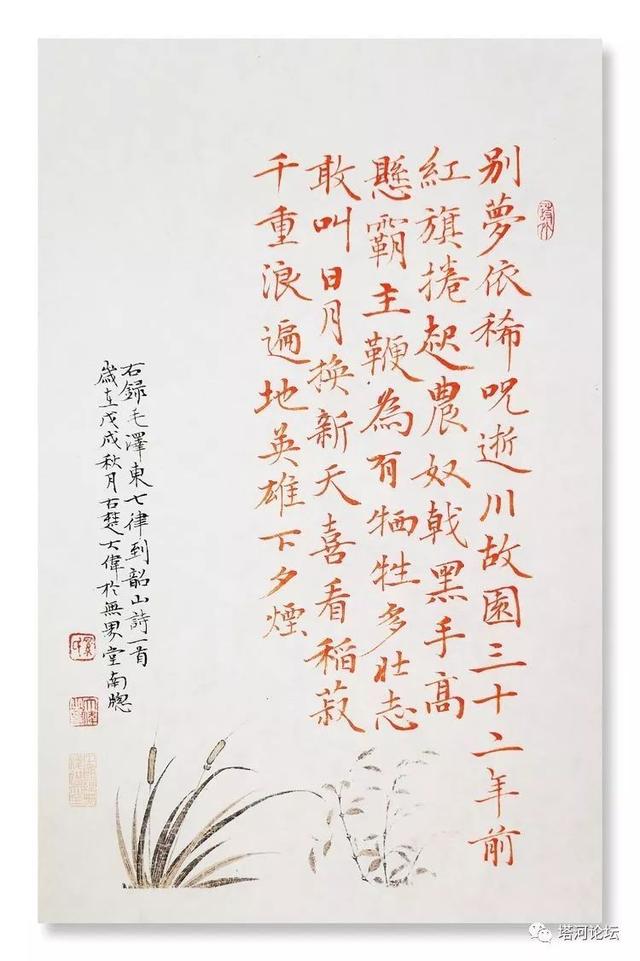 别夢依稀呪逝川故園三十二年前
紅旗捲起農奴戟黑手高
懸霸主鞭為有牺牲多壯志
敢叫日月換新天喜看稻菽
千重浪遍地英雄下夕煙
右録毛澤東七律到韶山詩一首
歲在戊戌秋月古楚大偉於無界堂南牕
塔河论坛